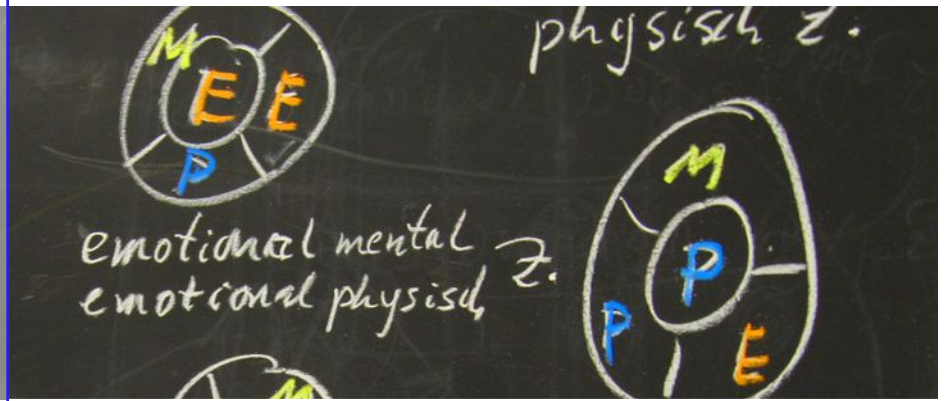 physisch z.
M
E E
P
emotional mental
emotional physisch z.
M
P
P
E
M